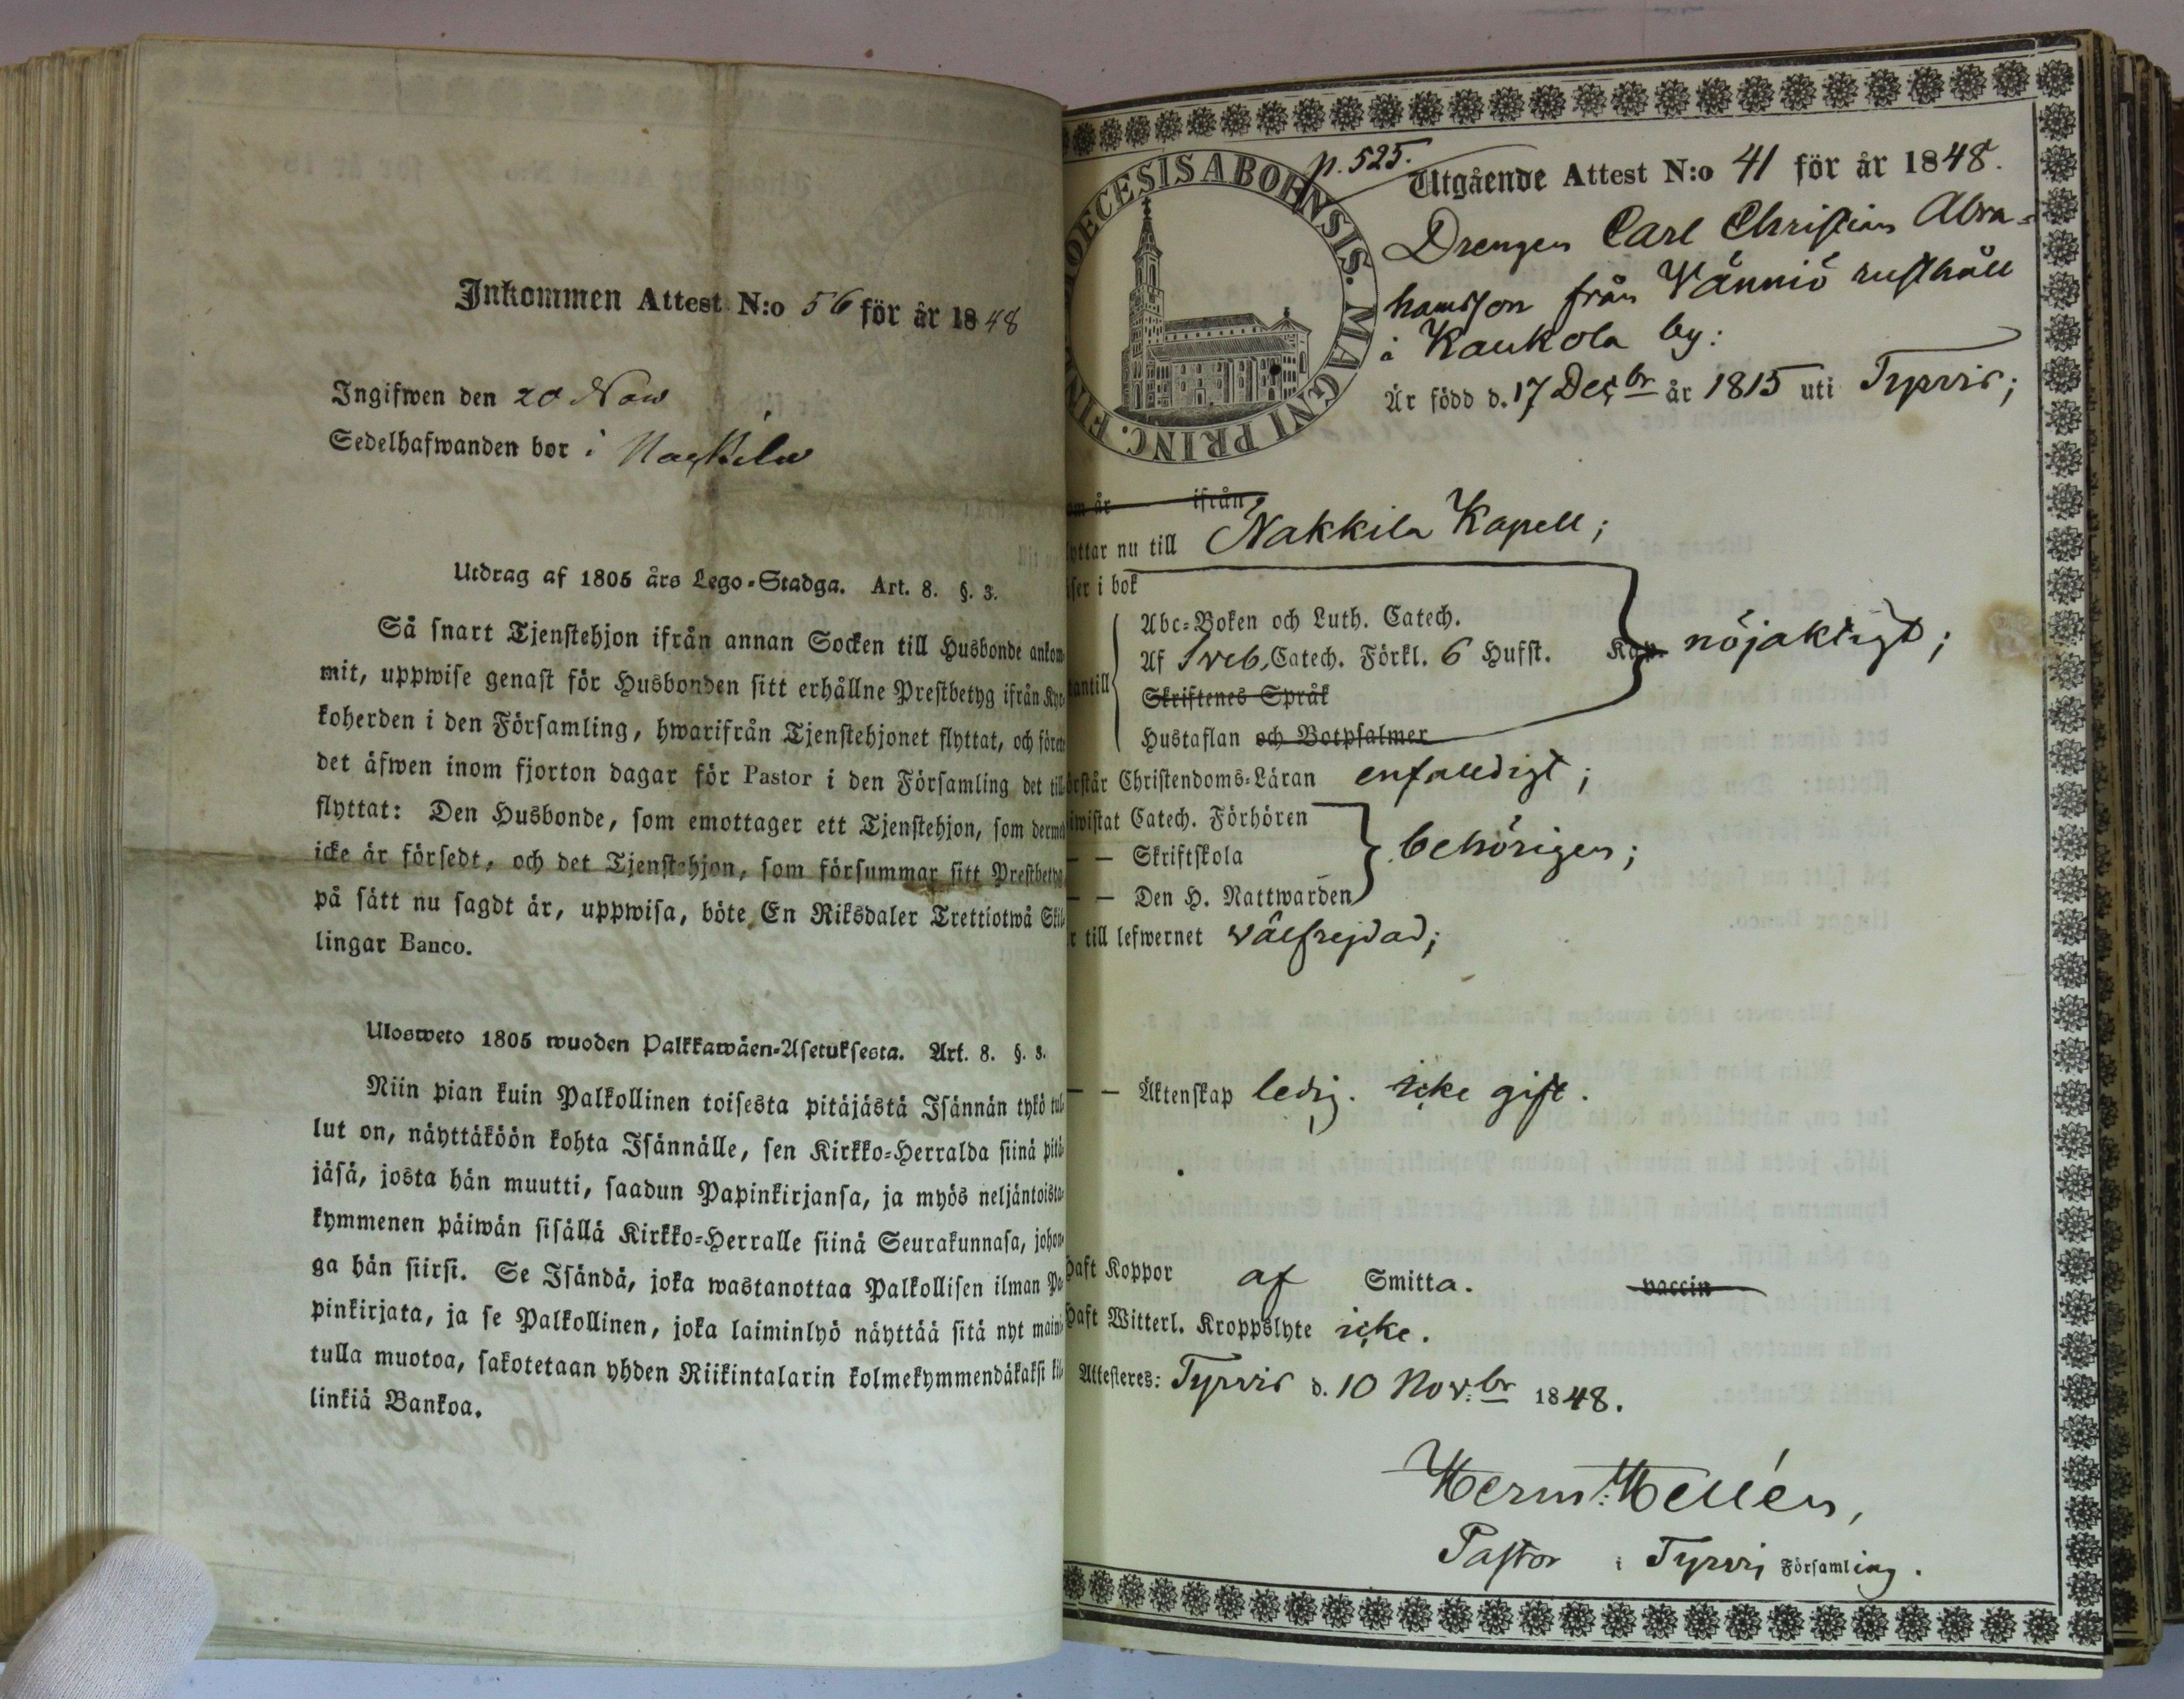 Inkommen Attest N:o 56 för år 1848
Ingifwen den 20 Nov
Sedelhafwanden bor i Nackila
Utdrag af 1805 års Lego-Stadga. Art. 8. §. 3.
Så snart Tjenstehjon ifrån annan Socken till Husbonde ankom-
mit, uppwise genast för Husbonden sitt erhållne Prestbetyg ifrån Kyr-
koherden i den Församling, hwarifrån Tjenstehjonet flyttat, och förete
det äfwen inom fjorton dagar för Pastor i den Församling det till-
flyttat: Den Husbonde, som emottager ett Tjenstehjon, som dermed
icke är försedt, och det Tjenstehjon, som försummar sitt Prestbetyg,
på sätt nu sagdt är, uppwisa, böte En Riksdaler Trettiotwå Skil-
lingar Banco.
Ulosweto 1805 wuoden Palkkawäen-Asetuksesta. Art. 8. §. 3.
Niin pian kuin Palkollinen toisesta pitäjästä Isännän tykö tul-
lut on, näyttäköön kohta Isännälle, sen Kirkko-Herralda siinä pitä-
jäsä, josta hän muutti, saadun Papinkirjansa, ja myös neljäntoista-
kymmenen päiwän sisällä Kirkko-Herralle siinä Seurakunnasa, johon-
ga hän siirsi. Se Isändä, joka wastanottaa Palkollisen ilman Pa-
pinkirjata, ja se Palkollinen, joka laiminlyö näyttää sitä nyt maini-
tulla muotoa, sakotetaan yhden Riikintalarin kolmekymmendäkaksi kil-
linkiä Bankoa.
DIOECESIS ABOENSIS. MAGNI PRINC. FIN
p. 525.
Utgående Attest N:o 41 för år 1848.
Drengen Carl Christian Abra-
hamsson från Wänniö rusthåll
i Kaukola by:
Är född d. 17 Decbr år 1815 uti Tyrvis;
om år ifrån
lyttar nu till Nakkila Kapell;
ser i bok
Abc-Boken och Luth. Catech.
Af Sveb. Catech. Förkl. 6 Hufst. Kap. nöjaktigt;
antill
Skriftenes Språk
Hustaflan och Botpsalmer
örstår Christendoms-Läran enfaldigt;
iwistat Catech. Förhören
— — Skriftskola behörigen;
— — Den H. Nattwarden
r till lefwernet välfrejdad;
— — Äktenskap ledig. icke gift.
Haft Koppor af Smitta. vaccin
Haft Witterl. Kroppslyte icke.
Attesteres: Tyrvis d. 10 Nov:br 1848.
Herm: Hellén,
Pastor i Tyrvis Församling.